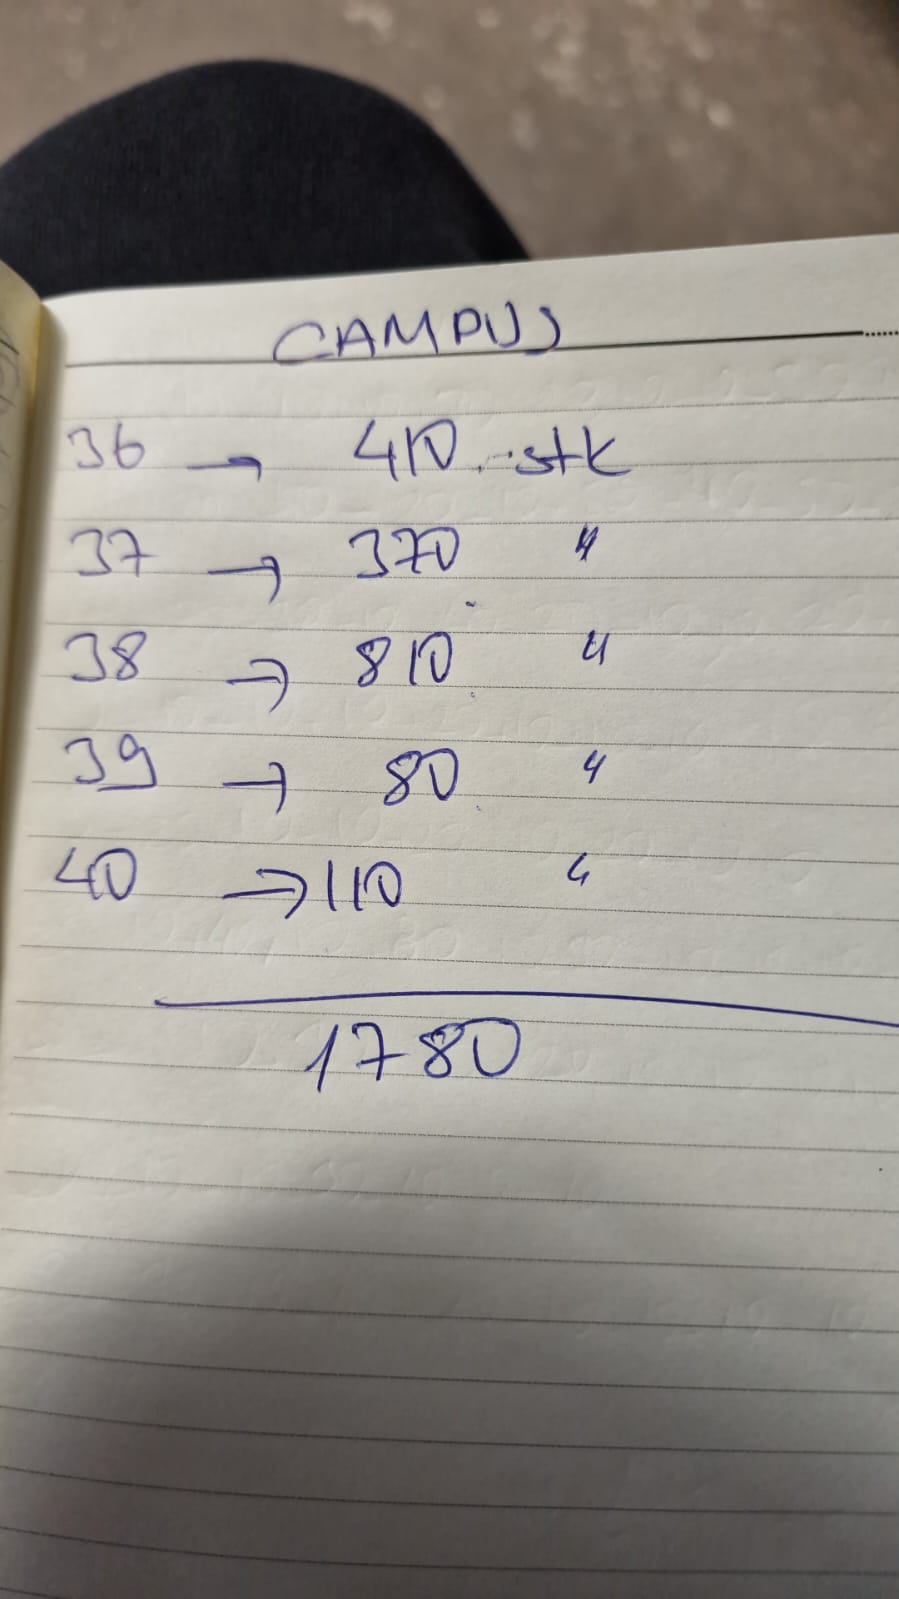 CAMPUS
36 → 410 stk
37 → 370 "
38 → 810 "
39 → 80 "
40 → 110 "
1780